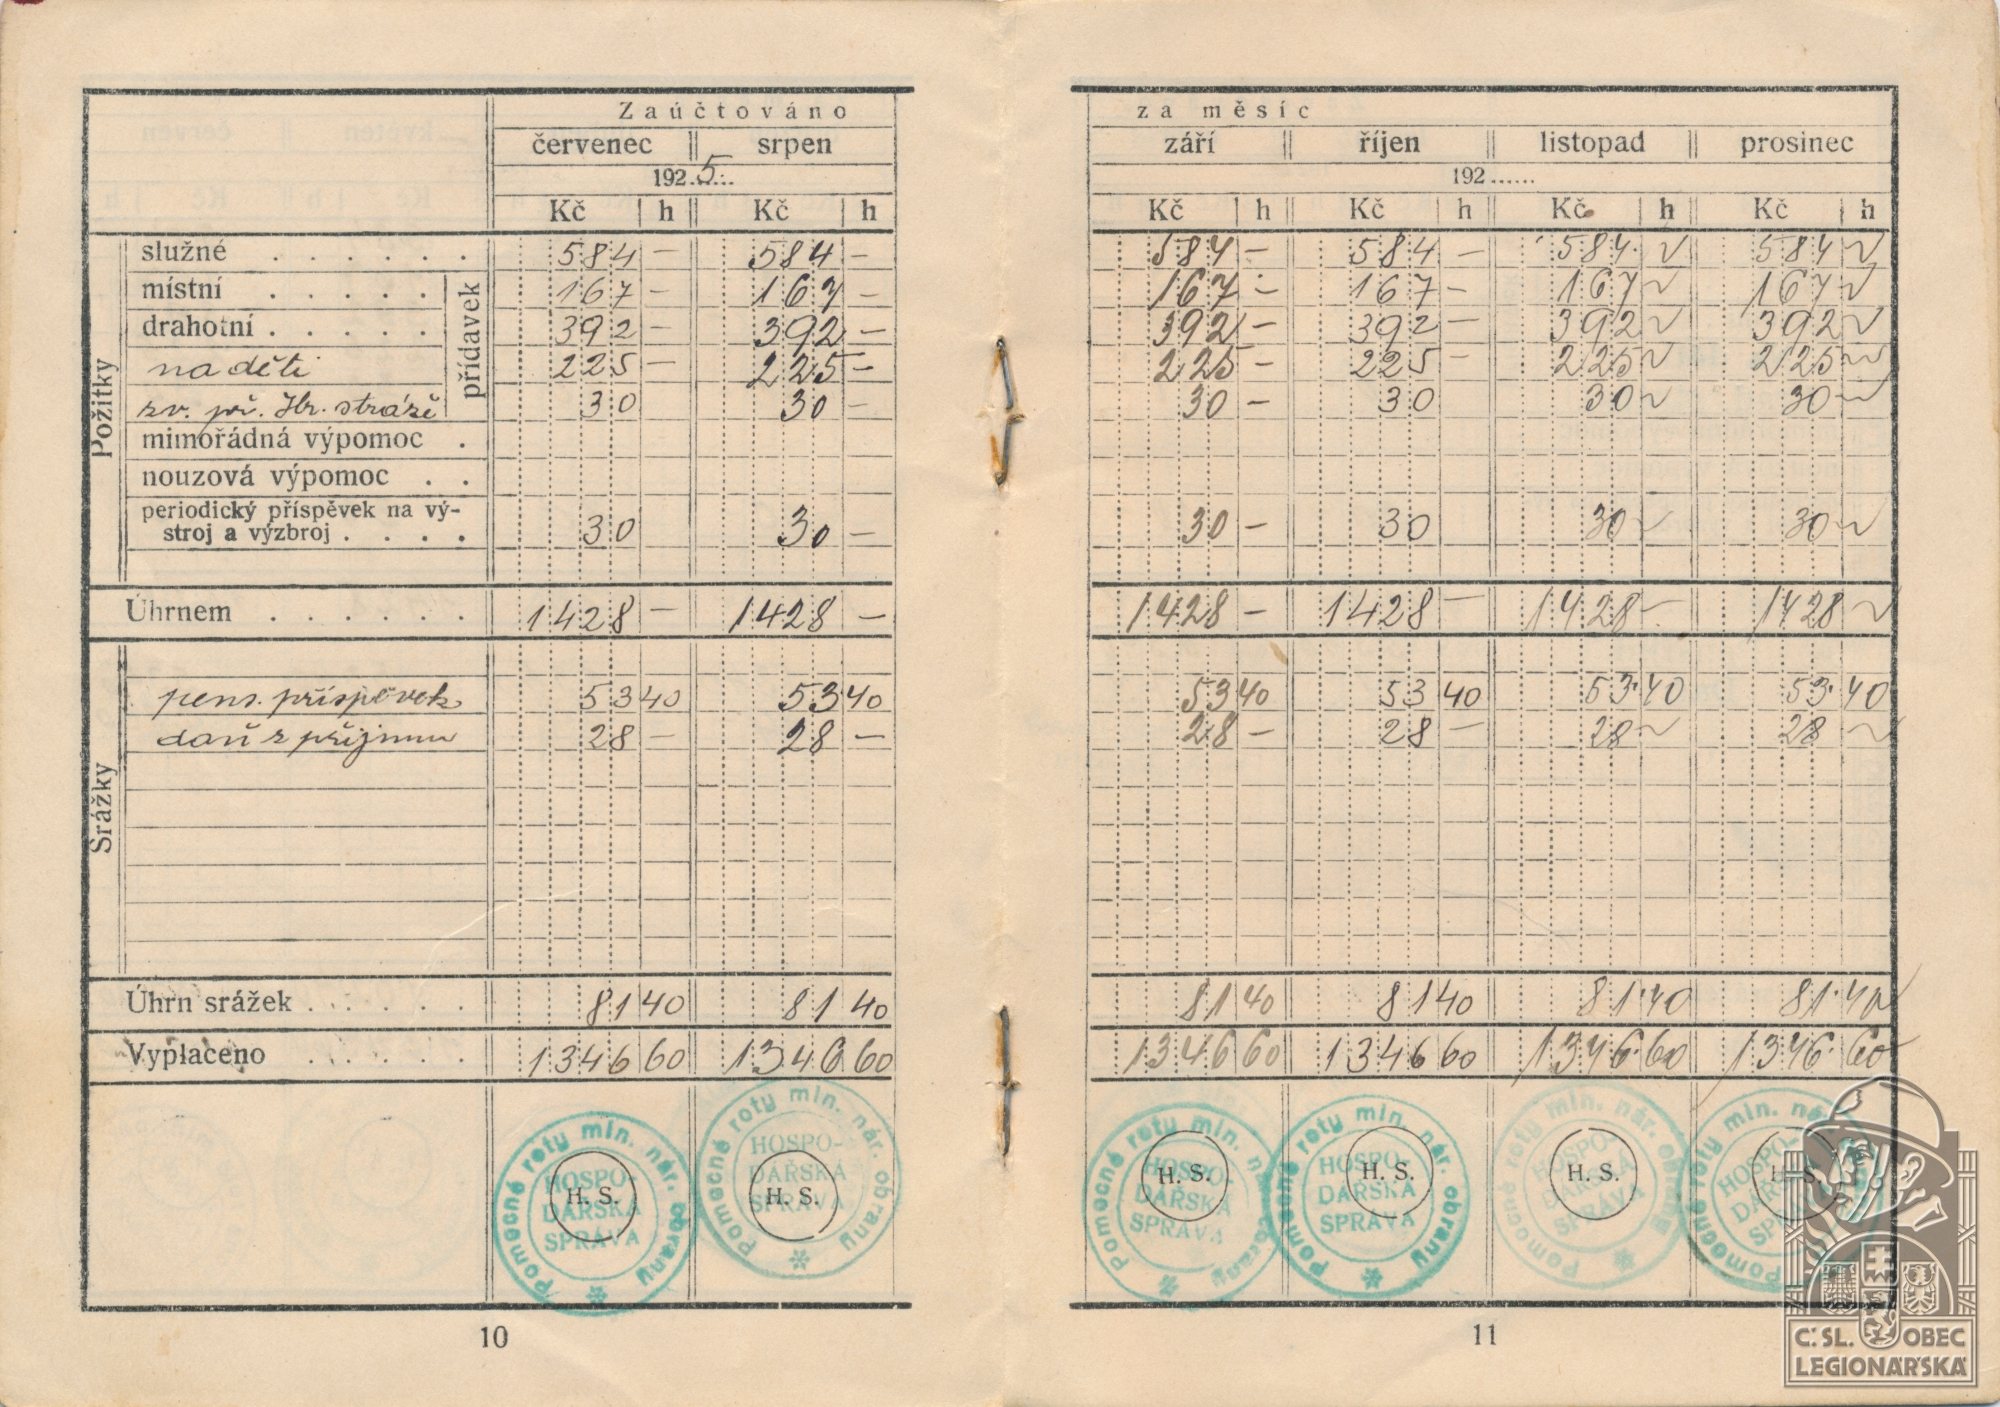 Zaúčtováno
červenec srpen
192 5
Kč h Kč h
Požitky
přídavek
služné 584 — 584 —
místní 167 — 167 —
drahotní 392 — 392 —
na děti 225 — 225 —
zv. př. Hr. stráže 30 30 —
mimořádná výpomoc
nouzová výpomoc
periodický příspěvek na vý-
stroj a výzbroj 30 30 —
Úhrnem 1428 — 1428 —
Srážky
pens. příspěvek 53 40 53 40
daň z příjmu 28 — 28 —
Úhrn srážek 81 40 81 40
Vyplaceno 1346 60 1346 60
Pomocné roty min. nár. obrany
HOSPO-
DÁŘSKÁ
SPRÁVA
H. S.
Pomocné roty min. nár. obrany
HOSPO-
DÁŘSKÁ
SPRÁVA
H. S.
10
za měsíc
září říjen listopad prosinec
192
Kč h Kč h Kč h Kč h
584 — 584 — 584 — 584 —
167 — 167 — 167 — 167 —
392 — 392 — 392 — 392 —
225 — 225 — 225 — 225 —
30 — 30 30 — 30 —
30 — 30 30 — 30 —
1428 — 1428 — 1428 — 1428 —
53 40 53 40 53 40 53 40
28 — 28 — 28 — 28 —
81 40 81 40 81 40 81 40
1346 60 1346 60 1346 60 1346 60
Pomocné roty min. nár. obrany
HOSPO-
DÁŘSKÁ
SPRÁVA
H. S.
Pomocné roty min. nár. obrany
HOSPO-
DÁŘSKÁ
SPRÁVA
H. S.
Pomocné roty min. nár. obrany
HOSPO-
DÁŘSKÁ
SPRÁVA
H. S.
Pomocné roty min. nár.
HOSPO-
DÁŘSKÁ
SPRÁVA
H. S.
11
Č. SL. OBEC
LEGIONÁŘSKÁ